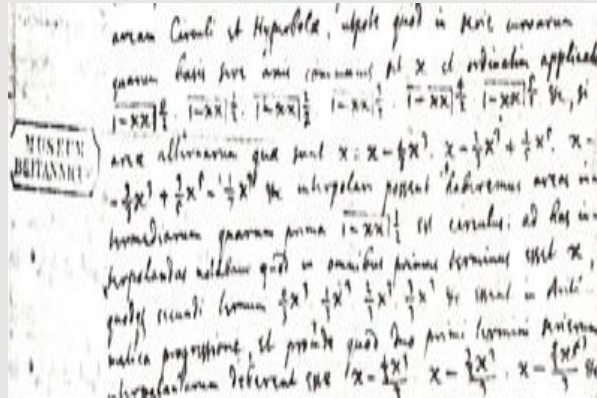 aream Circuli et Hyperbolæ, utpote quod in serie curvarum
quarum basis sive axis communis sit x et ordinatim applicatæ
1-xx|0/2. 1-xx|1/2. 1-xx|2/2. 1-xx|3/2. 1-xx|4/2. 1-xx|5/2 &c, si
MUSEUM
BRITANNICUM
areæ alternarum quæ sunt x. x-1/3x³. x-2/3x³+1/5x⁵. x-
-3/3x³+3/5x⁵-1/7x⁷ &c interpolari possent haberemus areas in-
termediarum quarum prima 1-xx|1/2 est circulus: ad has in-
terpolandas notabam quod in omnibus primus terminus esset x,
quodq secundi termini 0/3x³. 1/3x³. 2/3x³. 3/3x³ &c essent in Arith-
metica progressione, et proinde quod duo primi termini serierum
interpolandarum deberent esse x-½x³/3. x-3/2x³/3. x-5/2x³/3 &c